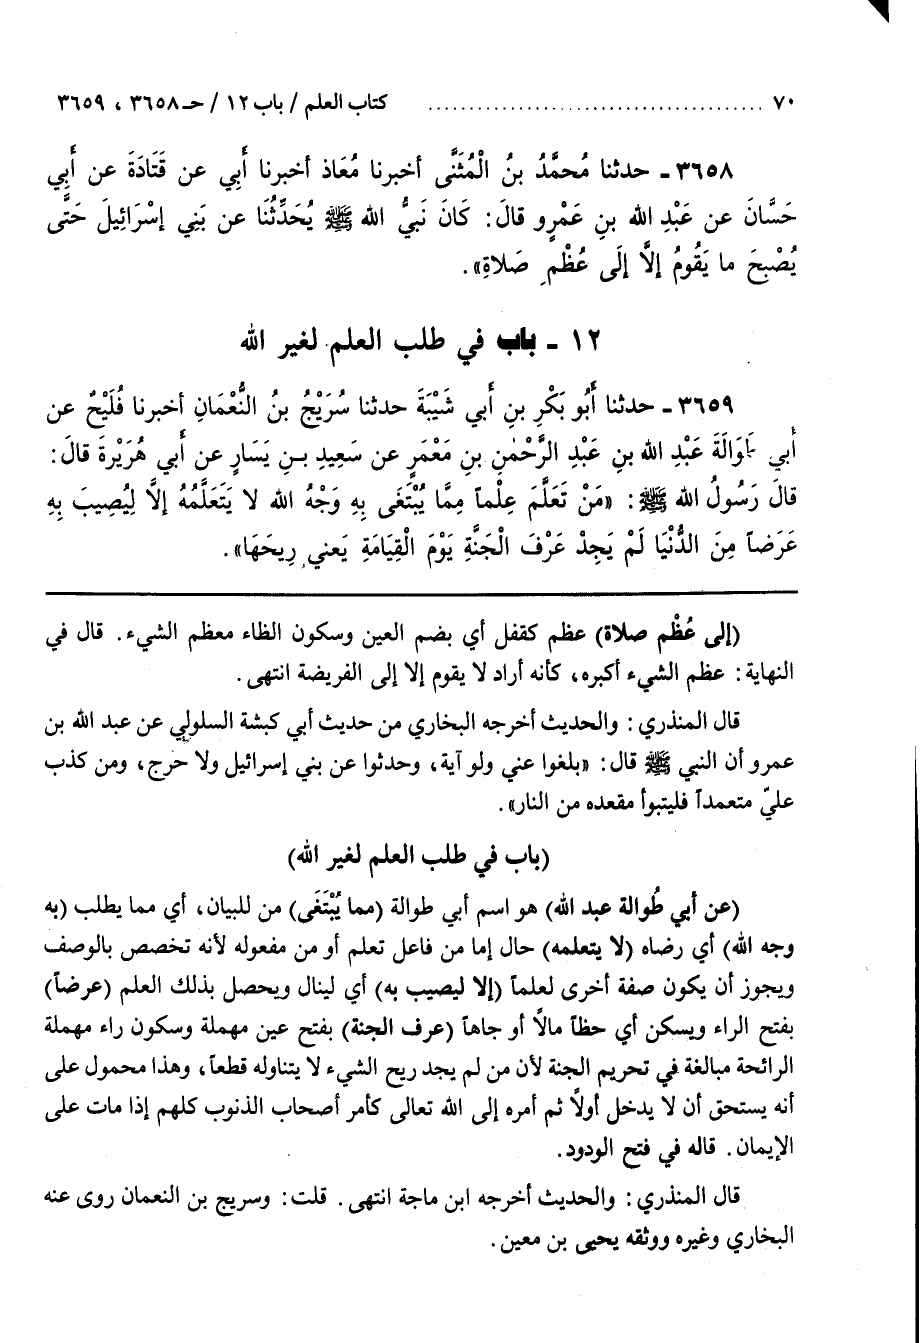 ٧٠ ........................................ كتاب العلم / باب ١٢ / حـ ٣٦٥٨ ، ٣٦٥٩
٣٦٥٨ ـ حدثنا مُحمَّدُ بنُ الْمُثَنَّى أخبرنا مُعَاذ أخبرنا أَبي عن قَتَادَةَ عن أَبي
حَسَّانَ عن عَبْدِ الله بنِ عَمْرٍو قالَ: كَانَ نَبيُّ الله ﷺ يُحَدِّثُنَا عن بَنِي إسْرَائيلَ حَتَّى
يُصْبحَ ما يَقُومُ إلَّا إلَى عُظْمِ صَلاةِ».
١٢ ـ باب في طلب العلم لغير الله
٣٦٥٩ ـ حدثنا أَبُو بَكْرِ بن أَبي شَيْبَةَ حدثنا سُرَيْجُ بنُ النُّعْمَانِ أخبرنا فُلَيْحٌ عن
أبي طُوَالَةَ عَبْدِ الله بنِ عَبْدِ الرَّحْمٰنِ بنِ مَعْمَرٍ عن سَعِيدِ بـنِ يَسَارٍ عن أَبي هُرَيْرةَ قالَ:
قالَ رَسُولُ الله ﷺ: «مَنْ تَعَلَّمَ عِلْماً مِمَّا يُبْتَغَى بِهِ وَجْهُ الله لا يَتَعَلَّمُهُ إلَّا لِيُصِيبَ بِهِ
عَرَضاً مِنَ الدُّنْيَا لَمْ يَجِدْ عَرْفَ الْجَنَّةِ يَوْمَ الْقِيَامَةِ يَعني رِيحَهَا».
(إلى عُظْم صلاة) عظم كقفل أي بضم العين وسكون الظاء معظم الشيء. قال في
النهاية: عظم الشيء أكبره، كأنه أراد لا يقوم إلا إلى الفريضة انتهى.
قال المنذري: والحديث أخرجه البخاري من حديث أبي كبشة السلولي عن عبد الله بن
عمرو أن النبي ﷺ قال: «بلغوا عني ولو آية، وحدثوا عن بني إسرائيل ولا حرج، ومن كذب
عليّ متعمداً فليتبوأ مقعده من النار».
(باب في طلب العلم لغير الله)
(عن أبي طُوالة عبد الله) هو اسم أبي طوالة (مما يُبْتَغَى) من للبيان، أي مما يطلب (به
وجه الله) أي رضاه (لا يتعلمه) حال إما من فاعل تعلم أو من مفعوله لأنه تخصص بالوصف
ويجوز أن يكون صفة أخرى لعلماً (إلا ليصيب به) أي لينال ويحصل بذلك العلم (عرضاً)
بفتح الراء ويسكن أي حظاً مالاً أو جاهاً (عرف الجنة) بفتح عين مهملة وسكون راء مهملة
الرائحة مبالغة في تحريم الجنة لأن من لم يجد ريح الشيء لا يتناوله قطعاً، وهذا محمول على
أنه يستحق أن لا يدخل أولاً ثم أمره إلى الله تعالى كأمر أصحاب الذنوب كلهم إذا مات على
الإيمان. قاله في فتح الودود.
قال المنذري: والحديث أخرجه ابن ماجة انتهى. قلت: وسريج بن النعمان روى عنه
البخاري وغيره ووثقه يحيى بن معين.